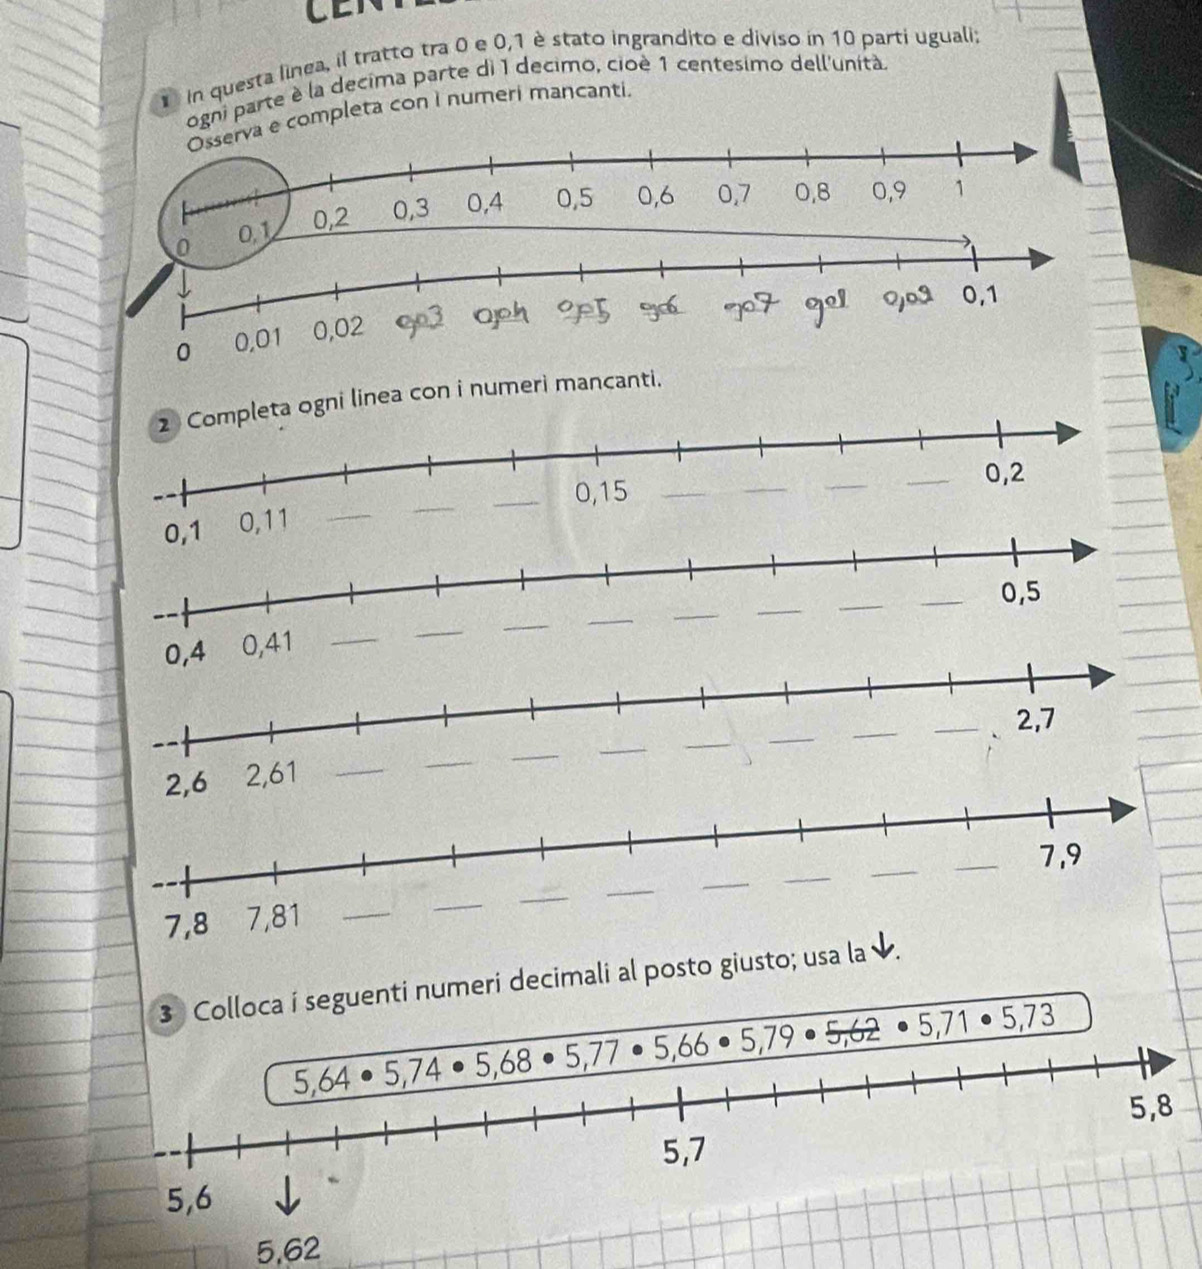 1 In questa linea, il tratto tra 0 e 0,1 è stato ingrandito e diviso in 10 parti uguali;
ogni parte è la decima parte di 1 decimo, cioè 1 centesimo dell'unità.
Osserva e completa con i numeri mancanti.
0 0,1 0,2 0,3 0,4 0,5 0,6 0,7 0,8 0,9 1
0 0,01 0,02 0,03 0,04 0,05 0,06 0,07 0,08 0,09 0,1
2 Completa ogni linea con i numeri mancanti.
0,1 0,11 0,15 0,2
0,4 0,41 0,5
2,6 2,61 2,7
7,8 7,81 7,9
3 Colloca i seguenti numeri decimali al posto giusto; usa la ↓.
5,64 • 5,74 • 5,68 • 5,77 • 5,66 • 5,79 • 5,62 • 5,71 • 5,73
5,6 5,7 5,8
5,62